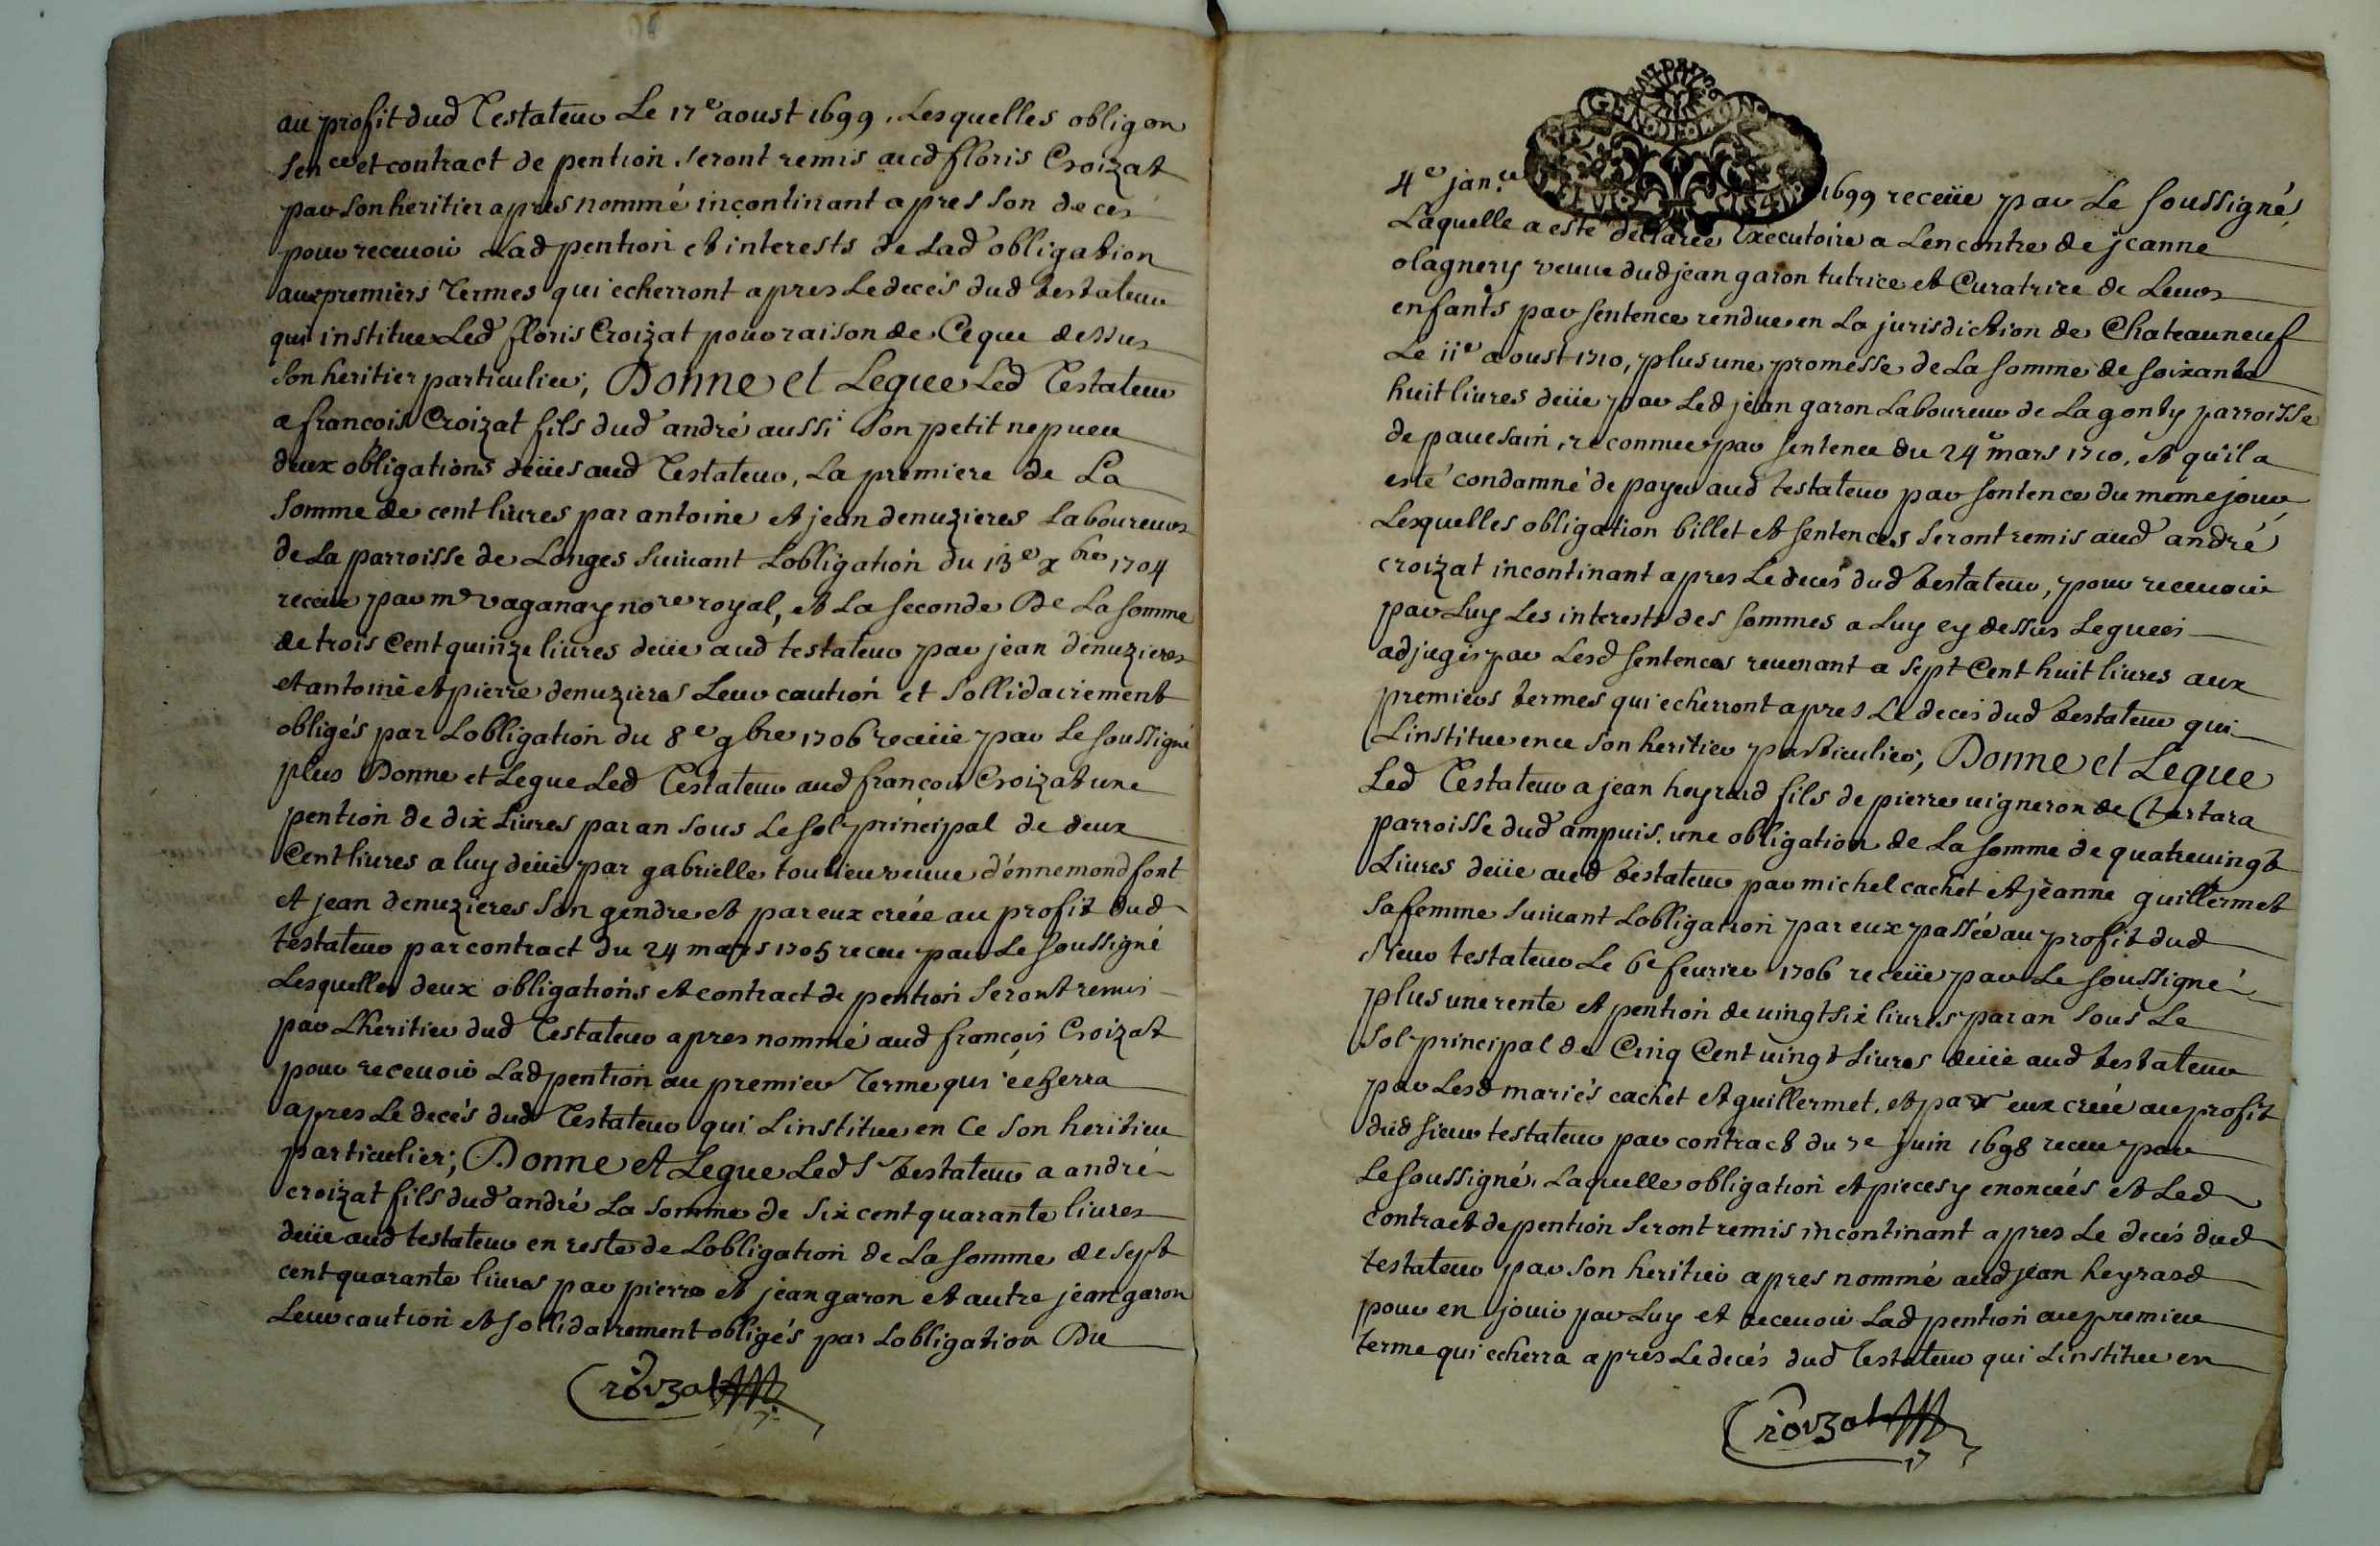 au profit dud Testateur Le 17e aoust 1699. Lesquelles obligon
sence et contract de pention seront remis aud floris Croizat
par son heritier apres nommé incontinant apres son deces
pour recevoir Lad pention et interests de Lad obligation
aux premiers Termes qui echerront apres Le decés dud testateur
qui institue Led floris Croizat pour raison de Ce que dessus
son heritier particulier; Donne et Legue Led Testateur
a francois Croizat fils dud andré aussi son petit nepueu
deux obligations deües aud Testateur, La premiere de La
somme de cent liures par antoine et jean denuzieres Laboureurs
de La parroisse de Longes suiuant Lobligation du 13e xbre 1704
receüe par me vaganay nore royal, et La seconde De La somme
de trois Cent quinze liures deüe aud testateur par jean denuzieres
et antoine et pierre denuzieres Leur caution et sollidairement
obligés par Lobligation du 8e gbre 1706 receüe par Le soussigné
plus Donne et Legue Led Testateur aud francois Croizat une
pention de dix Liures par an sous Le sol principal de deux
Cent liures a luy deüe par gabrielle toulieu veuue d'ennemond font
et jean denuzieres son gendre et par eux creée au profit dud
testateur par contract du 24 mars 1705 receu par Le soussigné
Lesquelles deux obligations et contract de pention seront remis
par Lheritier dud Testateur apres nommé aud francois Croizat
pour recevoir Lad pention au premier Terme qui echerra
apres Le decés dud Testateur qui Linstitue en Ce son heritier
particulier; Donne et Legue Led Sr testateur a andré
croizat fils dud andré La somme de six cent quarante liures
deüe aud testateur en reste de Lobligation de La somme de sept
cent quarante liures par pierre et jean garon et autre jean garon
Leur caution et sollidairement obligés par Lobligation Du
Croizat
4e jan.er 1699 receüe par Le soussigné,
Laquelle a esté declarée Executoire a Lencontre de jeanne
olagnery veuue dud jean garon tutrice et Curatrice de Leurs
enfants par sentence rendue en La jurisdiction de Chateauneuf
Le 11e aoust 1710, plus une promesse de La somme de soixante
huit liures deüe par Led jean garon Laboureur de Lagonty parroisse
de pauesain, reconnue par sentence du 24e mars 1710, et qu'il a
esté condamné de payer aud testateur par sentence du meme jour,
Lesquelles obligation billet et sentences seront remis aud andré
croizat incontinant apres Le decés dud testateur, pour recevoir
par Luy Les interests des sommes a Luy cy dessus Leguees
adjugés par Lesd sentences reuenant a sept Cent huit liures aux
premiers termes qui echerront apres Le decés dud testateur qui
Linstitue en ce son heritier particulier; Donne et Legue
Led Testateur a jean heyraud fils de pierre uigneron de Chartara
parroisse dud ampuis. une obligation de La somme de quatreuingt
Liures deüe aud testateur par michel cachet et jeanne guillermet
sa femme suiuant Lobligation par eux passée au profit dud
sieur testateur Le 6e feurier 1706 receüe par Le soussigné
plus une rente et pention de uingt six liures par an sous Le
sol principal de Cinq Cent uingt Liures deüe aud testateur
par Lesd mariés cachet et guillermet, et par eux creée au profit
dud sieur testateur par contract du 7e juin 1698 receu par
Le soussigné. Laquelle obligation et pieces y enoncées et Led
contract de pention seront remis incontinant apres Le decés dud
testateur par son heritier apres nommé aud jean heyraud
pour en jouir par Luy et recevoir Lad pention au premier
terme qui echerra apres Le decés dud Testateur qui Linstitue en
Croizat